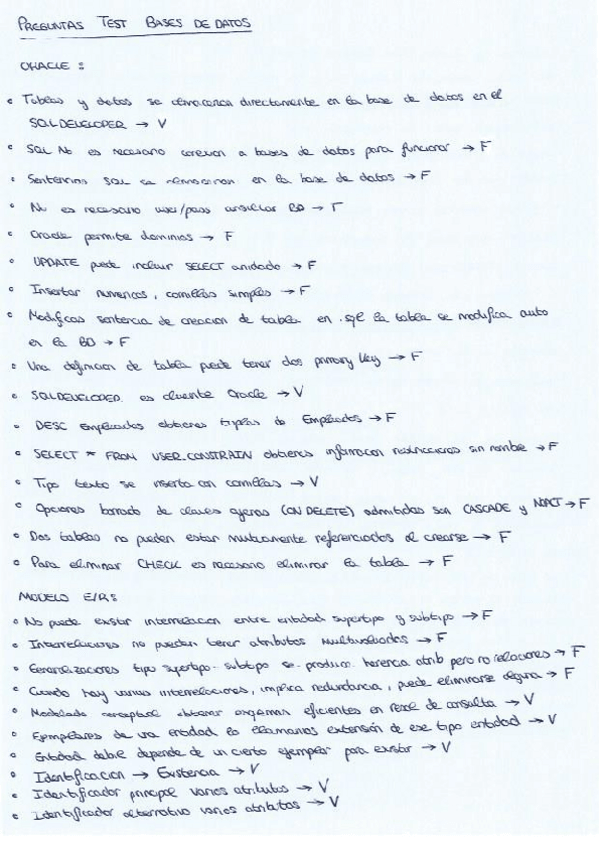 PREGUNTAS TEST BASES DE DATOS
ORACLE :
• Tablas y datos se almacenan directamente en la base de datos en el
SQLDEVELOPER → V
• SQL No es necesario conexion a bases de datos para funcionar → F
• Sentencias SQL se almacenan en la base de datos → F
• No es necesario user/pass consultar BD → F
• Oracle permite dominios → F
• UPDATE puede incluir SELECT anidado → F
• Insertar numericos, comillas simples → F
• Modificas sentencia de creacion de tabla en .sql la tabla se modifica auto
en la BD → F
• Una definicion de tabla puede tener dos primary key → F
• SQLDEVELOPER es cliente Oracle → V
• DESC Empleados obtienes tuplas de Empleados → F
• SELECT * FROM USER_CONSTRAIN obtienes informacion restricciones sin nombre → F
• Tipo texto se inserta con comillas → V
• Opciones borrado de claves ajenas (ON DELETE) admitidas son CASCADE y NOACT → F
• Dos tablas no pueden estar mutuamente referenciadas al crearse → F
• Para eliminar CHECK es necesario eliminar la tabla → F
MODELO E/R:
• No puede existir interrelacion entre entidad supertipo y subtipo → F
• Interrelaciones no pueden tener atributos multivaluados → F
• Generalizaciones tipo supertipo-subtipo se produce herencia atrib pero no relaciones → F
• Cuando hay varias interrelaciones, implica redundancia, puede eliminarse alguna → F
• Modelado conceptual obtener esquemas eficientes en resol de consulta → V
• Ejemplares de una entidad lo llamamos extensión de ese tipo entidad → V
• Entidad debil depende de un cierto ejemplar para existir → V
• Identificacion → Existencia → V
• Identificador principal varios atributos → V
• Identificador alternativo varios atributos → V